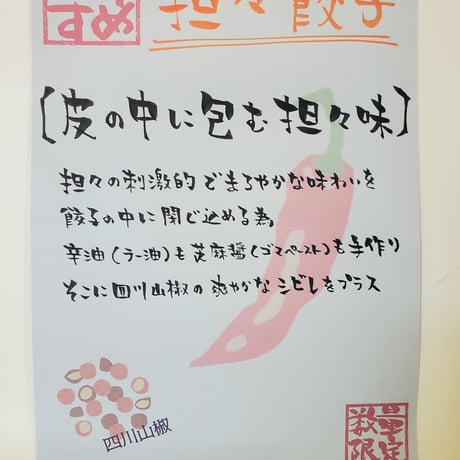 すめ
担々餃子
〔皮の中に包む担々味〕
担々の刺激的でまろやかな味わいを
餃子の中に閉じ込める為、
辛油(ラー油)も芝麻醤(ゴマペースト)も手作り
そこに四川山椒の爽やかなシビレをプラス
四川山椒
数量
限定